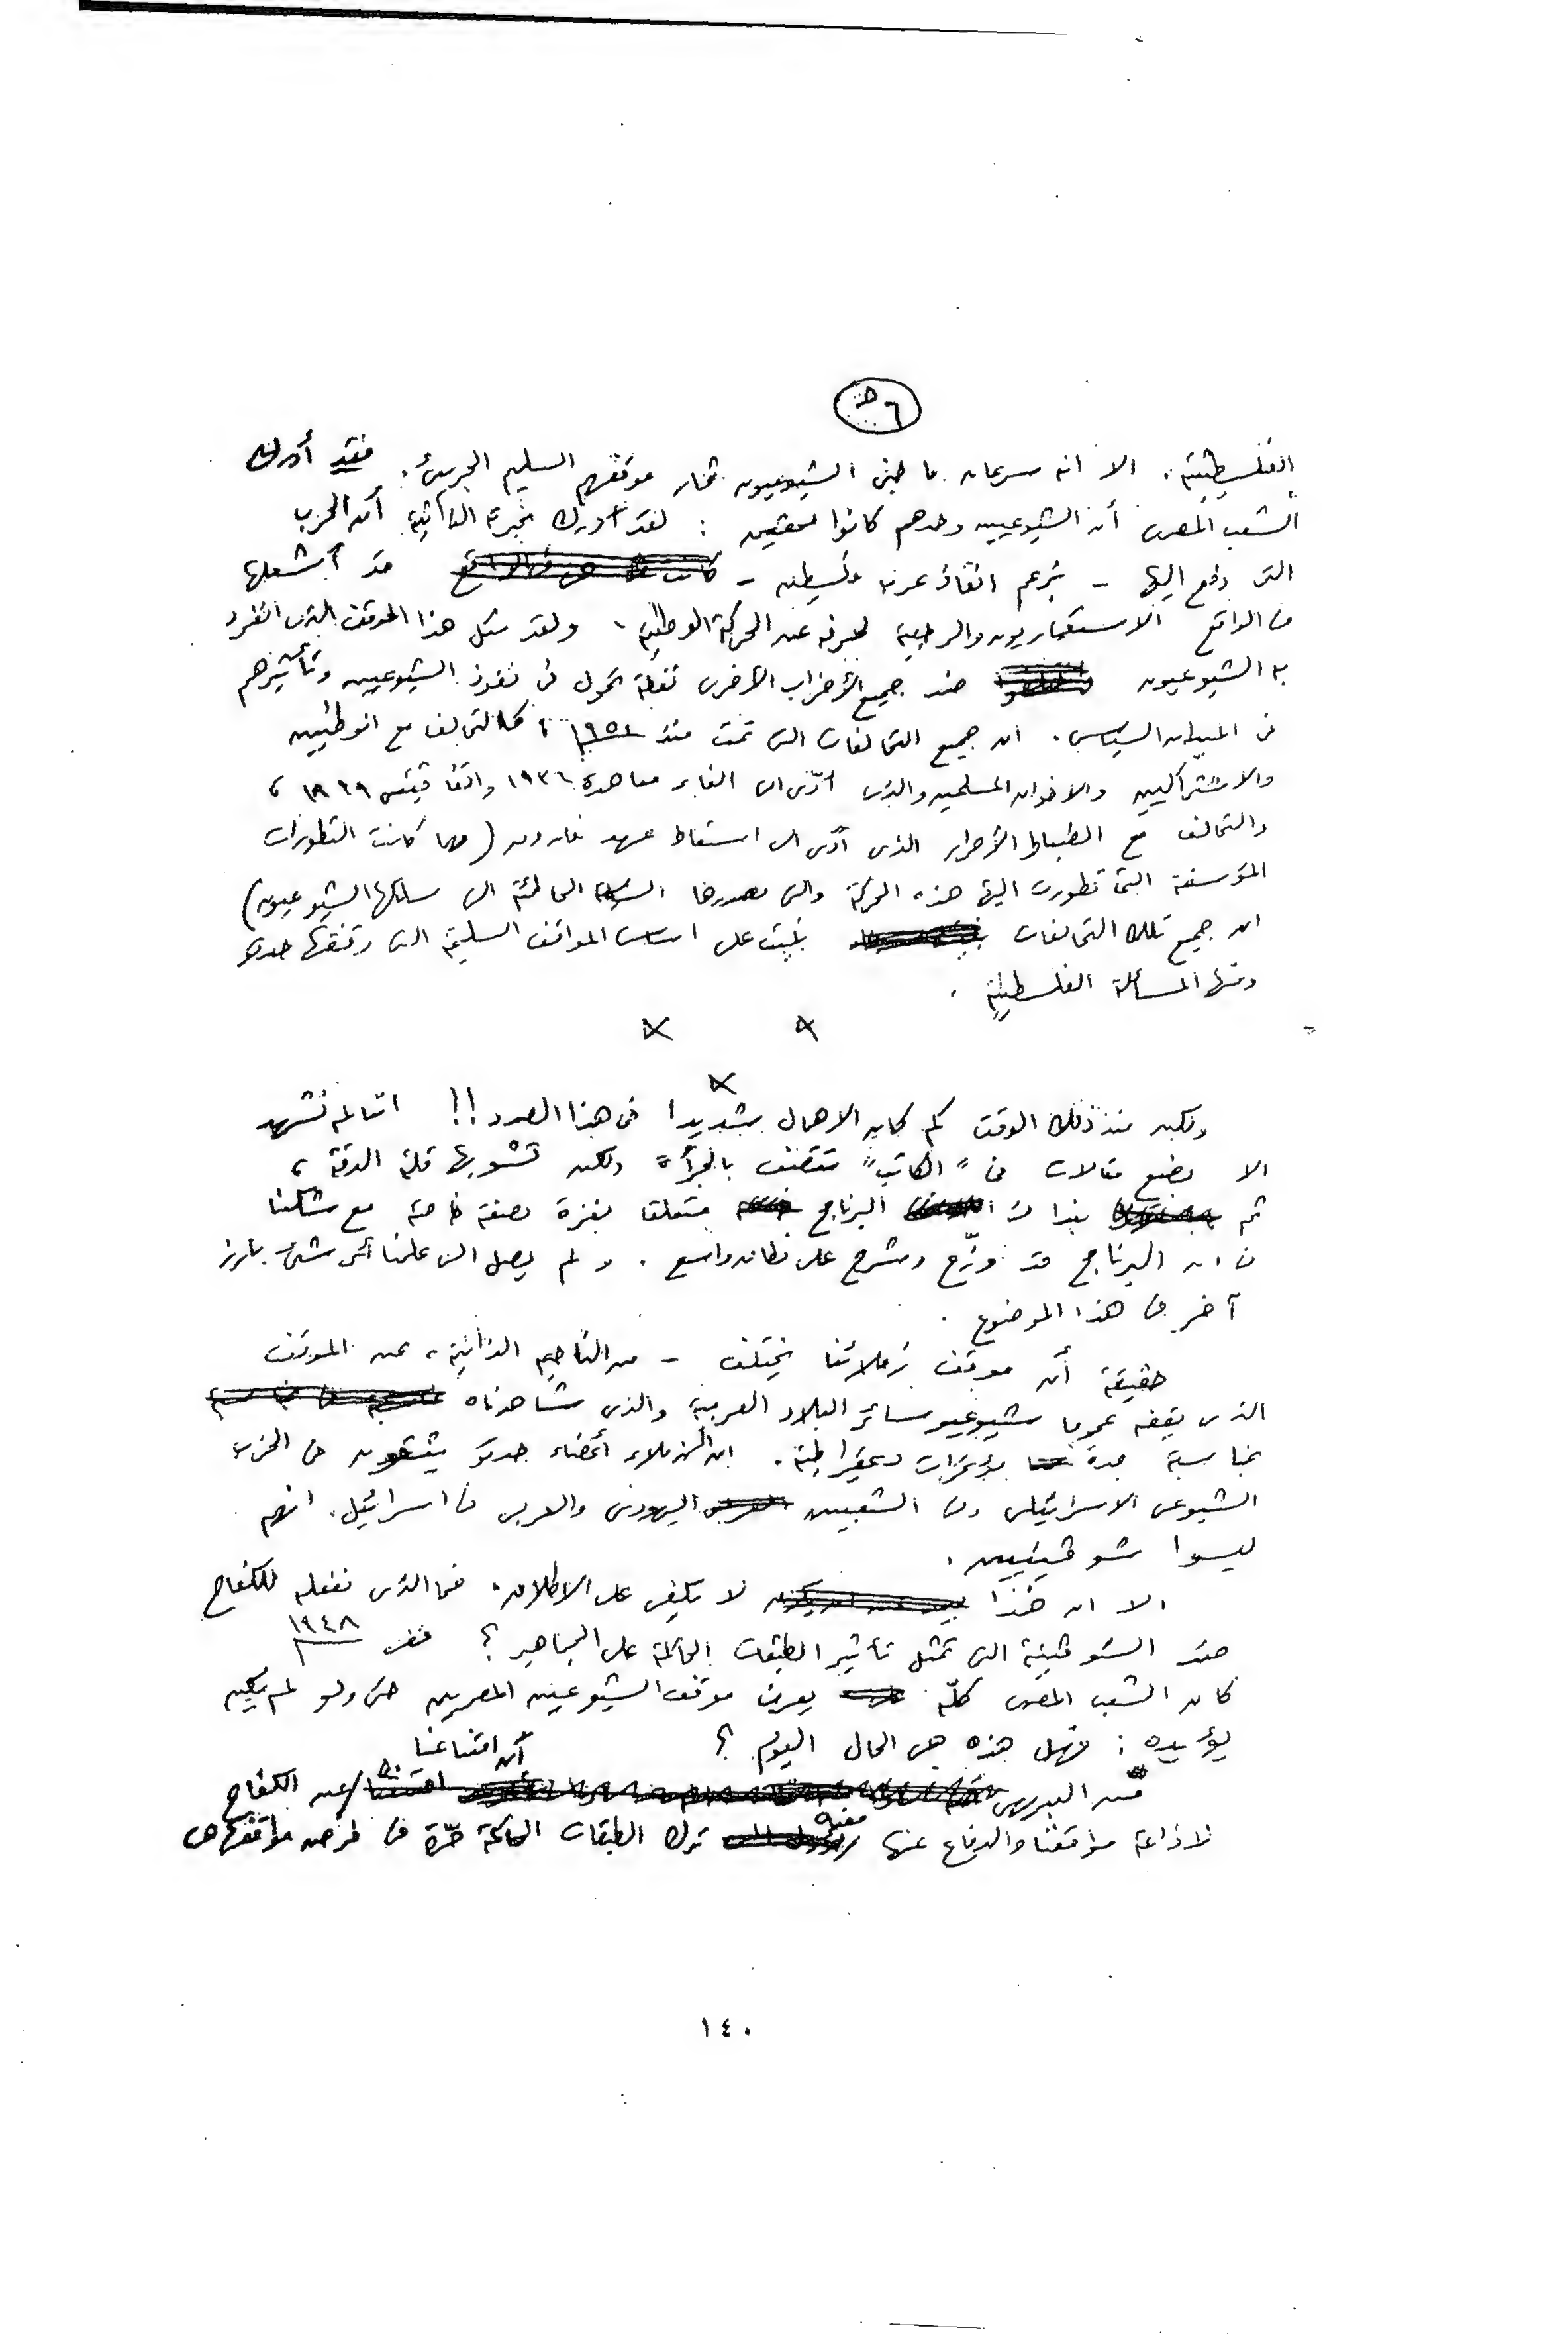 ٦
الفلسطينية. الا انه سرعان ما جنى الشيوعيون ثمار موقفهم السليم الجرئ. فقد أدرك
الشعب المصرى أن الشيوعيين وحدهم كانوا محقين : لقد أدرك بخبرته الذاتية أن الحرب
التى دفع اليها - بزعم انقاذ عرب فلسطين - قد أشعلها
فى الواقع الاستعماريون والرجعية لحرفه عن الحركة الوطنية. ولقد شكل هذا الموقف الذى انفرد
به الشيوعيون ضد جميع الأحزاب الأخرى نقطة تحول فى نفوذ الشيوعيين وتأثيرهم
فى الميدان السياسى. ان جميع التحالفات التى تمت منذ ، كالتحالف مع الوطنيين
والاشتراكيين والاخوان المسلمين والذى أدّى الى الغاء معاهدة ١٩٣٦ واتفاقيتى ١٨٩٩ ،
والتحالف مع الضباط الأحرار الذى أدّى الى اسقاط عهد فاروق (مهما كانت التطورات
المؤسفة التى تطورت اليها هذه الحركة والتى مصدرها السياسة الخاطئة التى سلكها الشيوعيون)
ان جميع تلك التحالفات بنيت على اساس المواقف السليمة التى وقفتها حدتو
ومنها المسألة الفلسطينية .
× ×
×
ولكن منذ ذلك الوقت كم كان الاهمال شديدا فى هذا الصدد !! اننا لم نشهد
الا بضع مقالات فى "الكاتب" تتصف بالجرأة ولكن تشوبها قلة الدقة ،
ثم بندا فى البرنامج متعلقا بغزة بصفة خاصة مع شكنا
فى ان البرنامج قد وزّع وشرح على نطاق واسع . ولم يصل الى علمنا أى شئ بارز
آخر فى هذا الموضوع .
حقيقة أن موقف زملائنا يختلف - من الناحية الذاتية ، عن الموقف
الذى يقفه عموما شيوعيو سائر البلاد العربية والذى شاهدناه
بمناسبة عدة مؤتمرات ديمقراطية . ان الزملاء أعضاء حدتو يثقون فى الحزب
الشيوعى الاسرائيلى وفى الشعبين اليهودى والعربى فى اسرائيل . انهم
ليسوا شوفينيين .
الا ان هذا لا يكفى على الاطلاق . فما الذى نفعله للكفاح
ضد الشوفينية التى تمثل تأثير الطبقات الحاكمة على الجماهير ؟ ففى ١٩٤٨
كان الشعب المصرى كلّه يعرف موقف الشيوعيين المصريين حتى ولو لم يكن
يؤيده : فهل هذه هى الحال اليوم ؟
فمن البديهى أن امتناعنا عن الكفاح
لاذاعة مواقفنا والدفاع عنها معناه ترك الطبقات الحاكمة حرّة فى فرض مواقفها هى
١٤٠